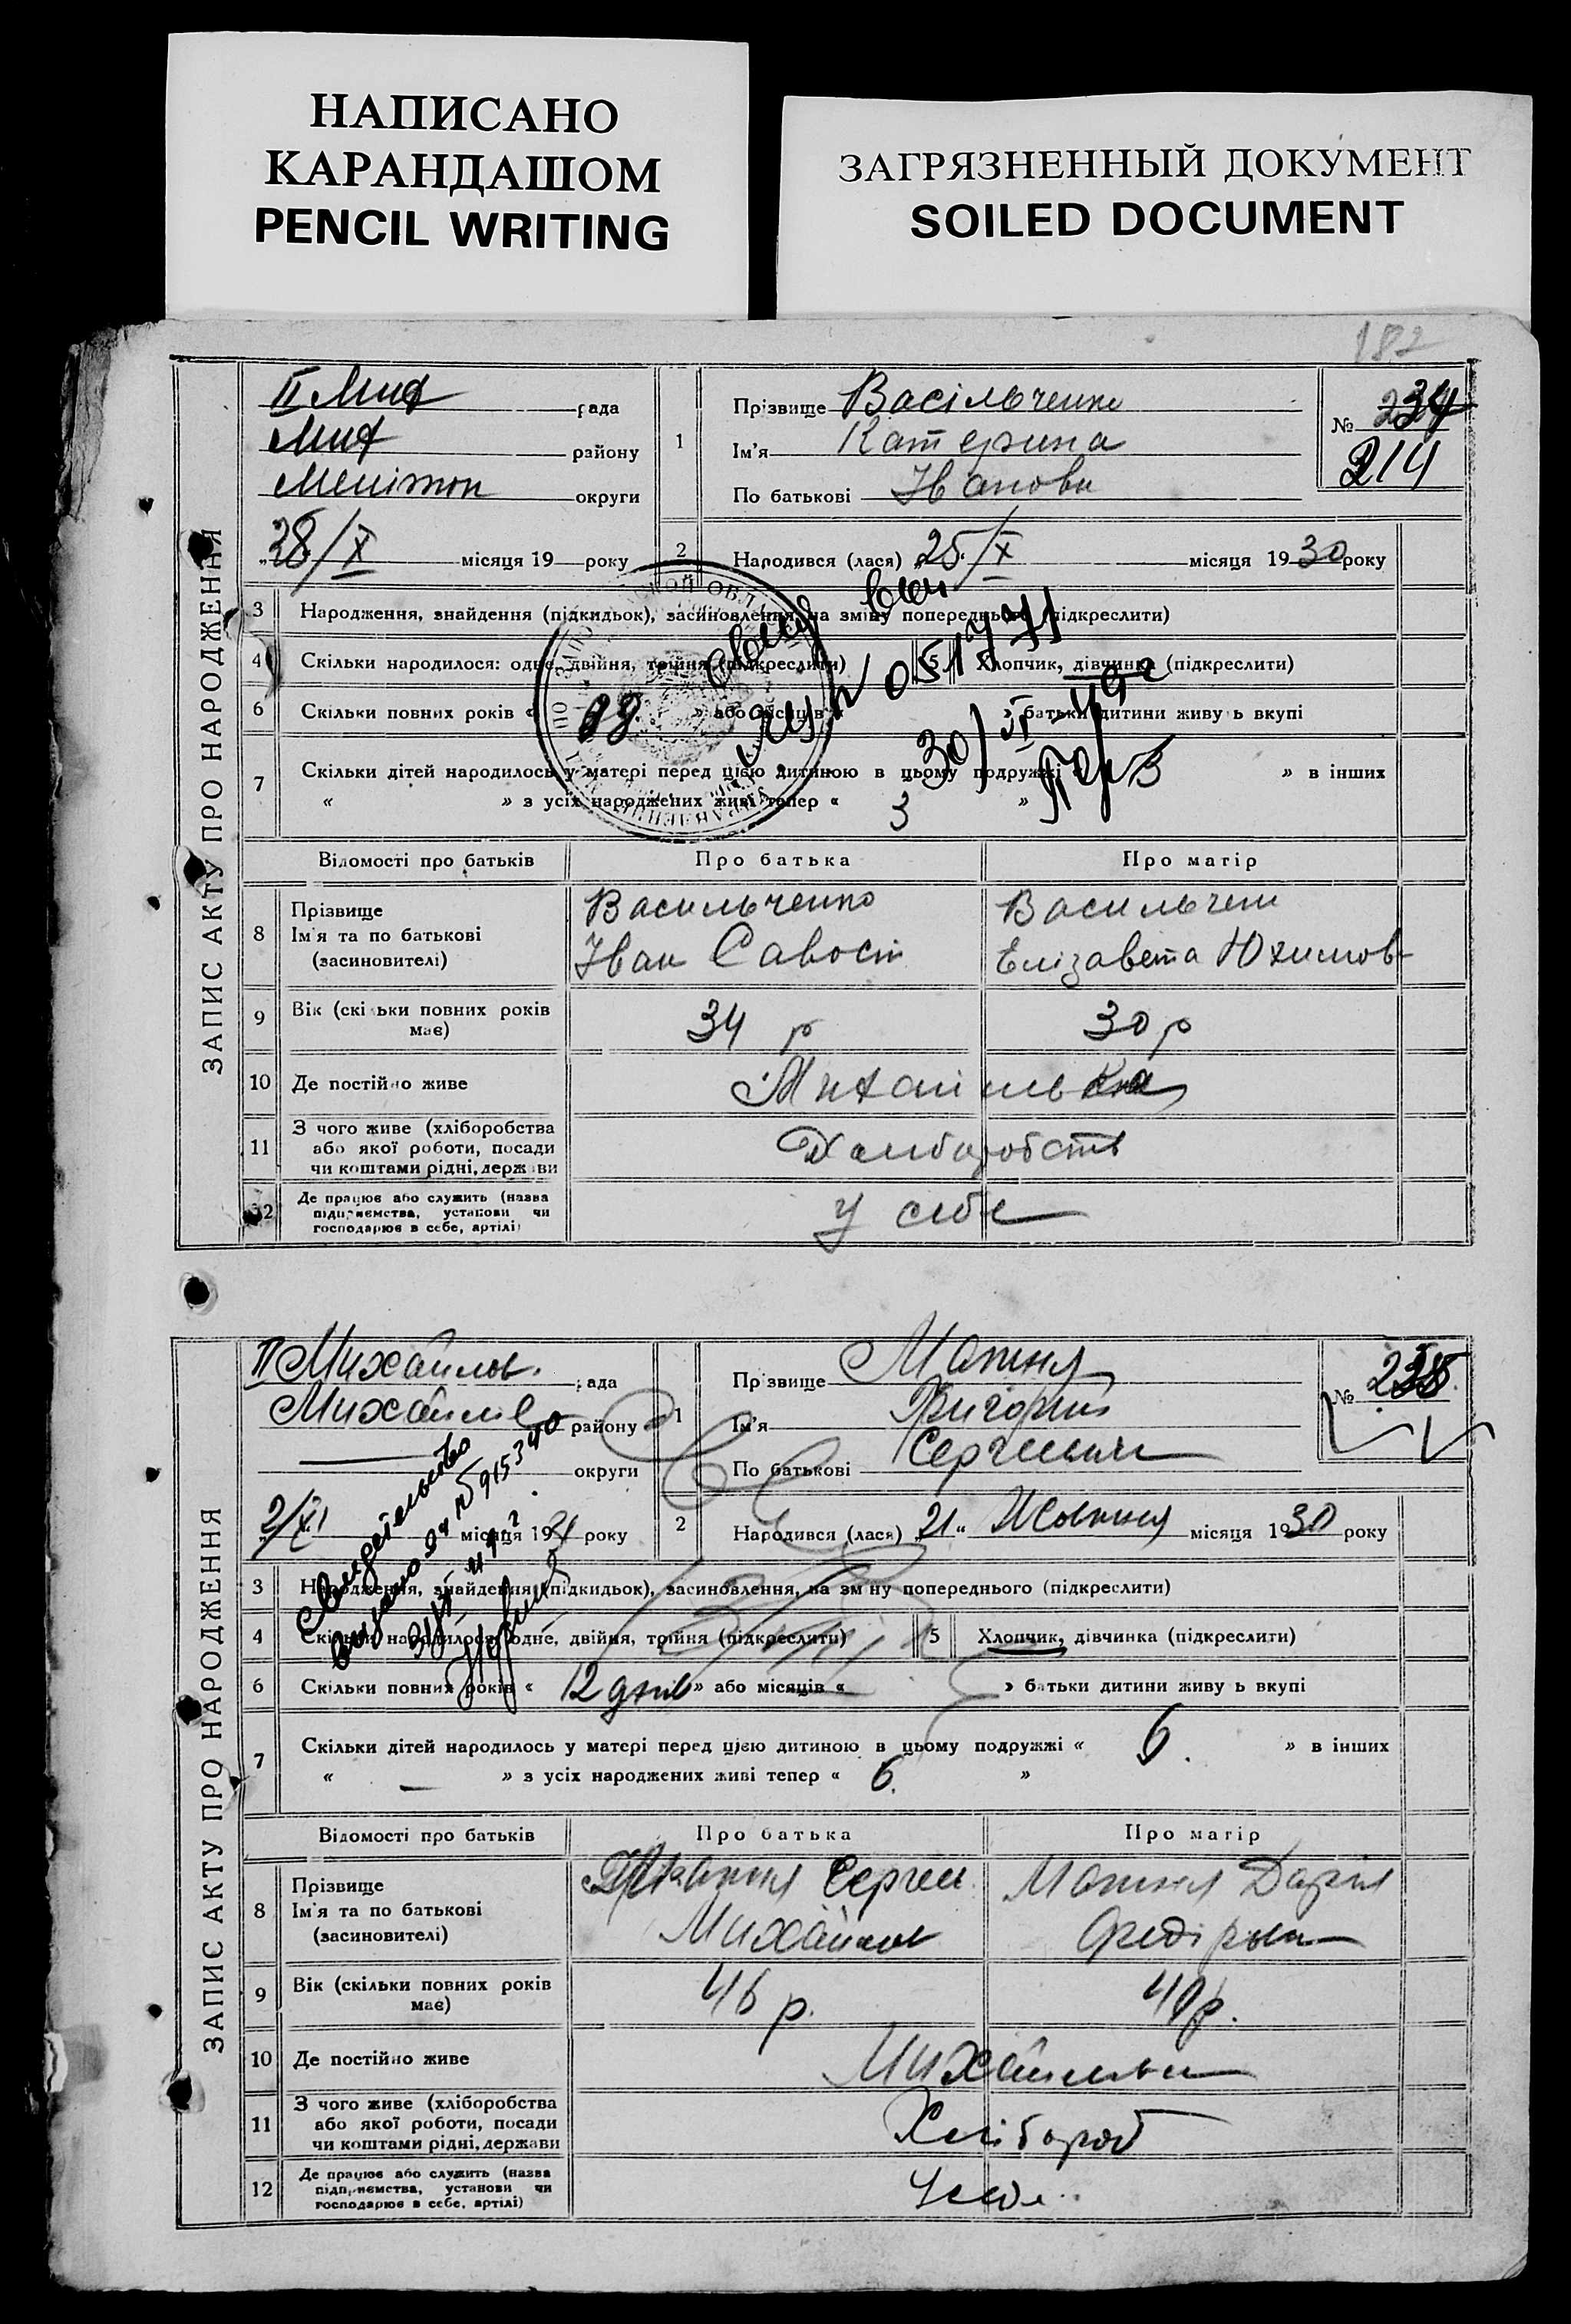 НАПИСАНО
КАРАНДАШОМ
PENCIL WRITING
ЗАГРЯЗНЕННЫЙ ДОКУМЕНТ
SOILED DOCUMENT
182
ЗАПИС АКТУ ПРО НАРОДЖЕННЯ
II Мих рада
Мих району
Мелітоп округи
„28/X місяця 19 року
1
Прізвище Васільченко
Ім'я Катерина
По батькові Іванови
№ 234
214
2
Народився (лася) „25/X місяця 1930 року
3 Народження, знайдення (підкидьок), засиновлення, на зміну попереднього (підкреслити)
4 Скільки народилося: одне, двійня, трійня (підкреслити)
5 Хлопчик, дівчинка (підкреслити)
6 Скільки повних років « » або місяців « » батьки дитини живуть вкупі
№ 051771
7 Скільки дітей народилось у матері перед цією дитиною в цьому подружжі « 3 » в інших
« » з усіх народжених живі тепер « 3 »
Відомості про батьків
Про батька
Про матір
8 Прізвище
Ім'я та по батькові
(засиновителі)
Васильченко
Іван Савост
Василічен
Елізавета Юхимов
9 Вік (скільки повних років
має)
34 р
30 р
10 Де постійно живе
Михайлівка
11 З чого живе (хліборобства
або якої роботи, посади
чи коштами рідні, держави
Хліборобств
12 Де працює або служить (назва
підприємства, установи чи
господарює в себе, артілі)
у себе
ЗАПИС АКТУ ПРО НАРОДЖЕННЯ
II Михайлов. рада
Михайлів району
округи
2/XI місяця 19 року
1
Прізвище Мотня
Ім'я Григорий
По батькові Сергеевич
№ 235
2
Народився (лася) „21“ Жовтня місяця 1930 року
Свидетельство
выдано № 915340
3 Народження, знайдення (підкидьок), засиновлення, на зміну попереднього (підкреслити)
4 Скільки народилося: одне, двійня, трійня (підкреслити)
5 Хлопчик, дівчинка (підкреслити)
6 Скільки повних років « 12 днів » або місяців « » батьки дитини живуть вкупі
7 Скільки дітей народилось у матері перед цією дитиною в цьому подружжі « 6. » в інших
« — » з усіх народжених живі тепер « 6. »
Відомості про батьків
Про батька
Про матір
8 Прізвище
Ім'я та по батькові
(засиновителі)
Мотня Сергей
Михайлов
Мотня Дарія
Федіровн
9 Вік (скільки повних років
має)
46 р.
40 р.
10 Де постійно живе
Михайлівка
11 З чого живе (хліборобства
або якої роботи, посади
чи коштами рідні, держави
Хлібороб
12 Де працює або служить (назва
підприємства, установи чи
господарює в себе, артілі)
У себе